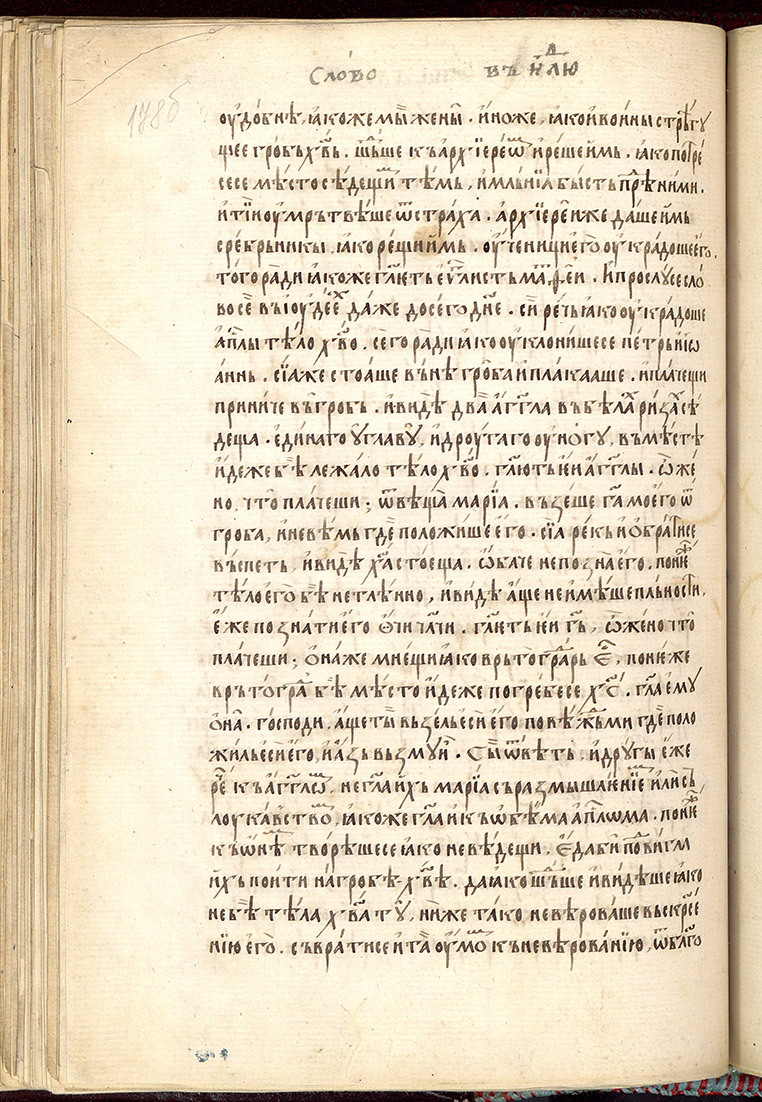 Сло́во въ н҃лю д҃
178б
оу҆до́бнѣ, ꙗ҆коже мы̀ жены̀. и҆но́же, ꙗ҆ко и҆ во́ины стрѣгꙋ
щее гро́бь х҃вь. шⷣьше къ а҆рхїере́ѡⷨ и҆ рѣше и҆мь. ꙗ҆ко потре́
сесе мѣ́сто сѣ́дещїи тѣ́мь, и҆ мль́нїа бы́сть прѣⷣ ними.
и҆ тїи оу҆мрьтвѣше ѿ стра́ха. а҆рхїере́и же да́ше и҆мь
сре́брьникы, ꙗ҆ко рещи и҆мь. оу҆ченици е҆го̀ оу҆кра́доше е҆го̀.
то́го ра́ди ꙗ҆коже гл҃еть е҆ѵⷢ҇листь маѳе́и. и҆ прослꙋ́се сло́
во сѐ въ і҆оуде́еⷯ да́же до сего̀ дн҃е. си́ рѣ́чь ꙗ҆ко оу҆кра́доше
а҆пⷭ҇лы тѣ́ло х҃во. сего̀ ра́ди ꙗ҆ко оу҆клони́шесе пе́трь и҆ і҆ѡ
а́ннь. сїа́же стоа́ше вънѣ̀ гро́ба и҆ пла́кааше. и҆ пла́чещи
прини́че въ гро́бь. и҆ ви́дѣ два̀ а҆гг҃ла въ бѣ́лаⷯ ри́заⷯ сѣ
деща. е҆ди́наго оу҆ главꙋ̀, и҆ дроуга́го оу҆ но́гꙋ, въ мѣ́стѣ
и҆де́же бѣ̀ лежа́ло тѣ́ло х҃во. гл҃ють е҆и а҆гг҃лы. ѽ же́
но, что̀ пла́чеши; ѿвѣща̀ марі́а. възе́ше г҃а моего̀ ѿ
гроба, и҆ не вѣ́мь гдѐ положи́ше е҆го̀. сїа ре́кь и҆ ѡ҆брати́се
въспе́ть, и҆ ви́дѣ х҃а стоеща. ѡ҆ба́че не позна̀ е҆го̀. пониⷤе
тѣ́ло е҆го̀ бѣ̀ нетлѣ́нно, и҆ ви́дѣ а҆́ще не и҆мѣ́ше пль́ности,
е҆́же позна́ти е҆го̀ ѡ҆чи чл҃чи. гл҃еть е҆и г҃ь, ѽ же́но что̀
пла́чеши; ѡ҆на́же мне́щи ꙗ҆ко врьтогра́дарь е҆́ⷭ, поне́же
врьтогра́ⷣ бѣ̀ мѣ́сто и҆де́же погре́бесе х҃с. гл҃а е҆мꙋ̀
ѡ҆на̀. го́споди, а҆́ще ты̀ взе́ль е҆си е҆го̀ повѣ́жⷣь ми гдѐ поло
жи́ль е҆си е҆го̀, и҆ а҆́зь вьзмꙋ и҆̀. сы̀ ѿвѣ́ть, и҆ дрꙋ́гы е҆же
ре́ⷱ къ а҆гг҃лѡⷨ, не гл҃а и҆хь марі́а съ размышле́нїеⷨ и҆ли съ
лоука́вствоⷨ, ꙗ҆коже гл҃а и҆ къ ѡ҆бѣ́ма а҆пⷭ҇лѡма. пониⷤе
къ ѡ҆нѣⷨ творѣ́шесе ꙗ҆ко не вѣ́дещи. е҆да би подви́гла
и҆хь пои́ти на гробѣ̀ х҃вѣ. да ꙗ҆ко шⷣьше и҆ ви́дѣше ꙗ҆ко
не бѣ̀ тѣ́ла х҃ва тꙋ̀, ни́же та́ко не вѣ́роваше въскрⷭ҇е
нїю е҆го̀. съвра́тисе и҆ та̀ оу҆мо́ⷨ къ невѣ́рованїю, ѿ бл҃го